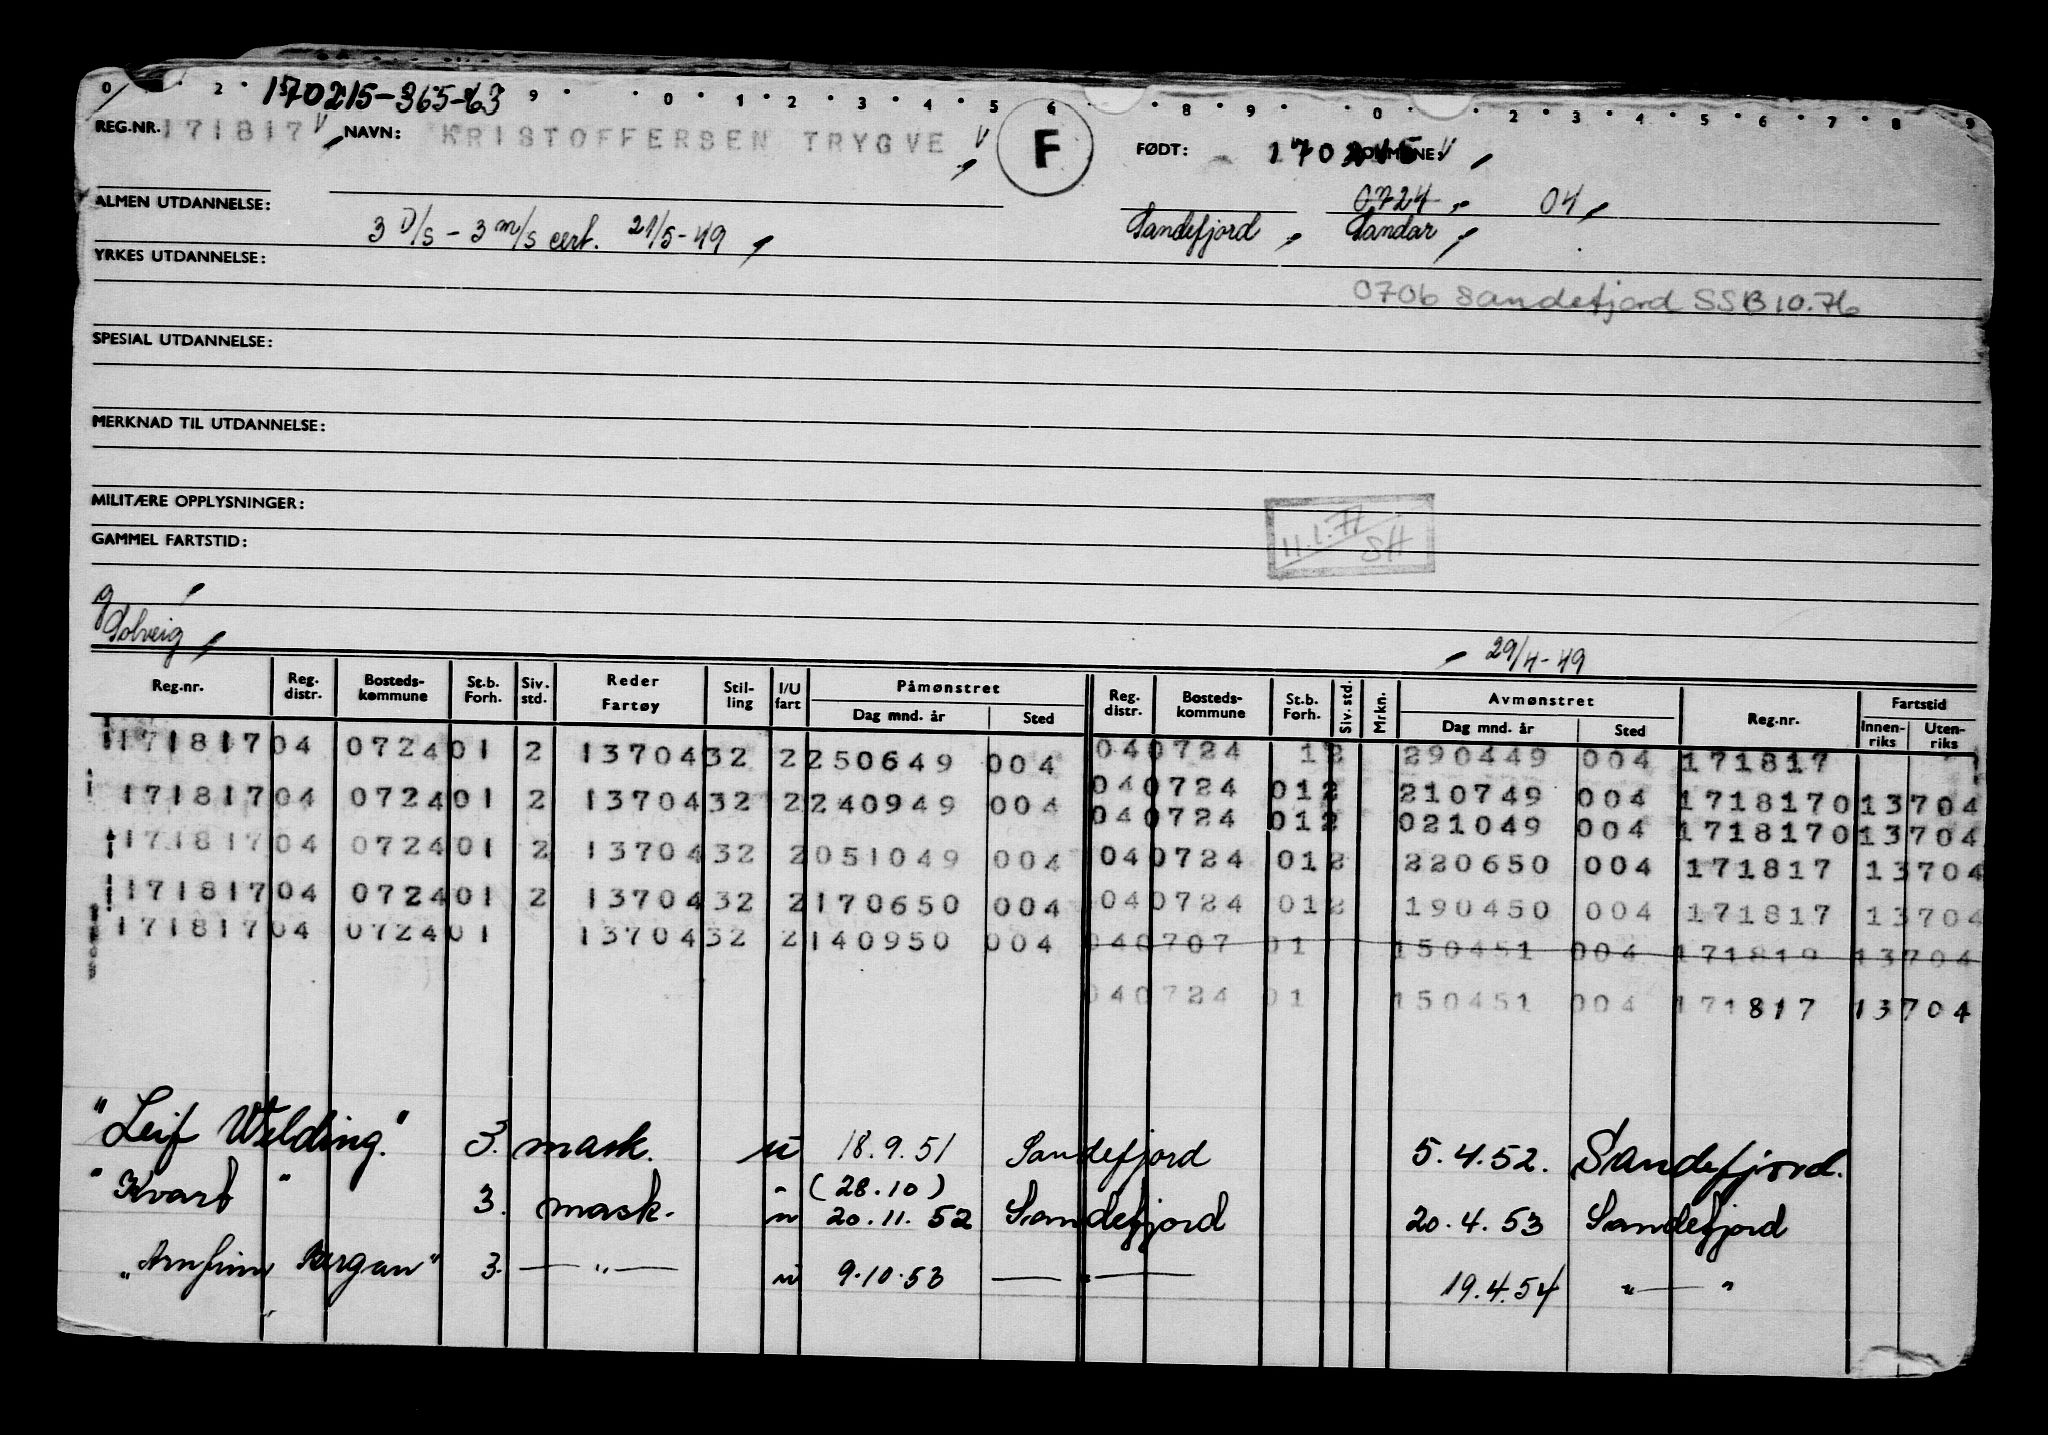 0 2 170215-365-63 9 0 1 2 3 4 5 6 8 9 0 2 3 4 5 6 7 8 9
REG.NR. 171817 NAVN: KRISTOFFERSEN TRYGVE F FØDT: 170215
0724 04
ALMEN UTDANNELSE:
3 D/S - 3 m/s cert. 21/5-49 Sandefjord Sandar
YRKES UTDANNELSE:
0706 Sandefjord SSB 10.76
SPESIAL UTDANNELSE:
MERKNAD TIL UTDANNELSE:
MILITÆRE OPPLYSNINGER:
11.1.71 SH
GAMMEL FARTSTID:
g
Solveig 29/4-49
Reg.nr. Reg. distr. Bosteds-kommune St.b. Forh. Siv. std. Reder Fartøy Stil-ling I/U fart Påmønstret Dag mnd. år Sted Reg. distr. Bosteds-kommune St.b. Forh. Siv. std. Mrkn. Avmønstret Dag mnd. år Sted Reg.nr. Fartstid Innen-riks Uten-riks
171817 04 0724 01 2 13704 32 2 250649 004 04 0724 1 2 290449 004 171817
171817 04 0724 01 2 13704 32 2 240949 004 04 0724 01 2 210749 004 171817 0 13704
04 0724 01 2 021049 004 171817 0 13704
171817 04 0724 01 2 13704 32 2 051049 004 04 0724 01 2 220650 004 171817 13704
171817 04 0724 01 2 13704 32 2 170650 004 04 0724 01 2 190450 004 171817 13704
171817 04 0724 01 13704 32 2 140950 004 04 0707 01 150451 004 171819 13704
04 0724 01 150451 004 171817 13704
"Leif Welding." 3. mask. u 18.9.51 Sandefjord 5.4.52. Sandefjord.
(28.10)
"Kvart" 3. mask. u 20.11.52 Sandefjord 20.4.53 Sandefjord
"Arnfinn Bergan" 3. — " — u 9.10.53 — " — 19.4.54 " — "